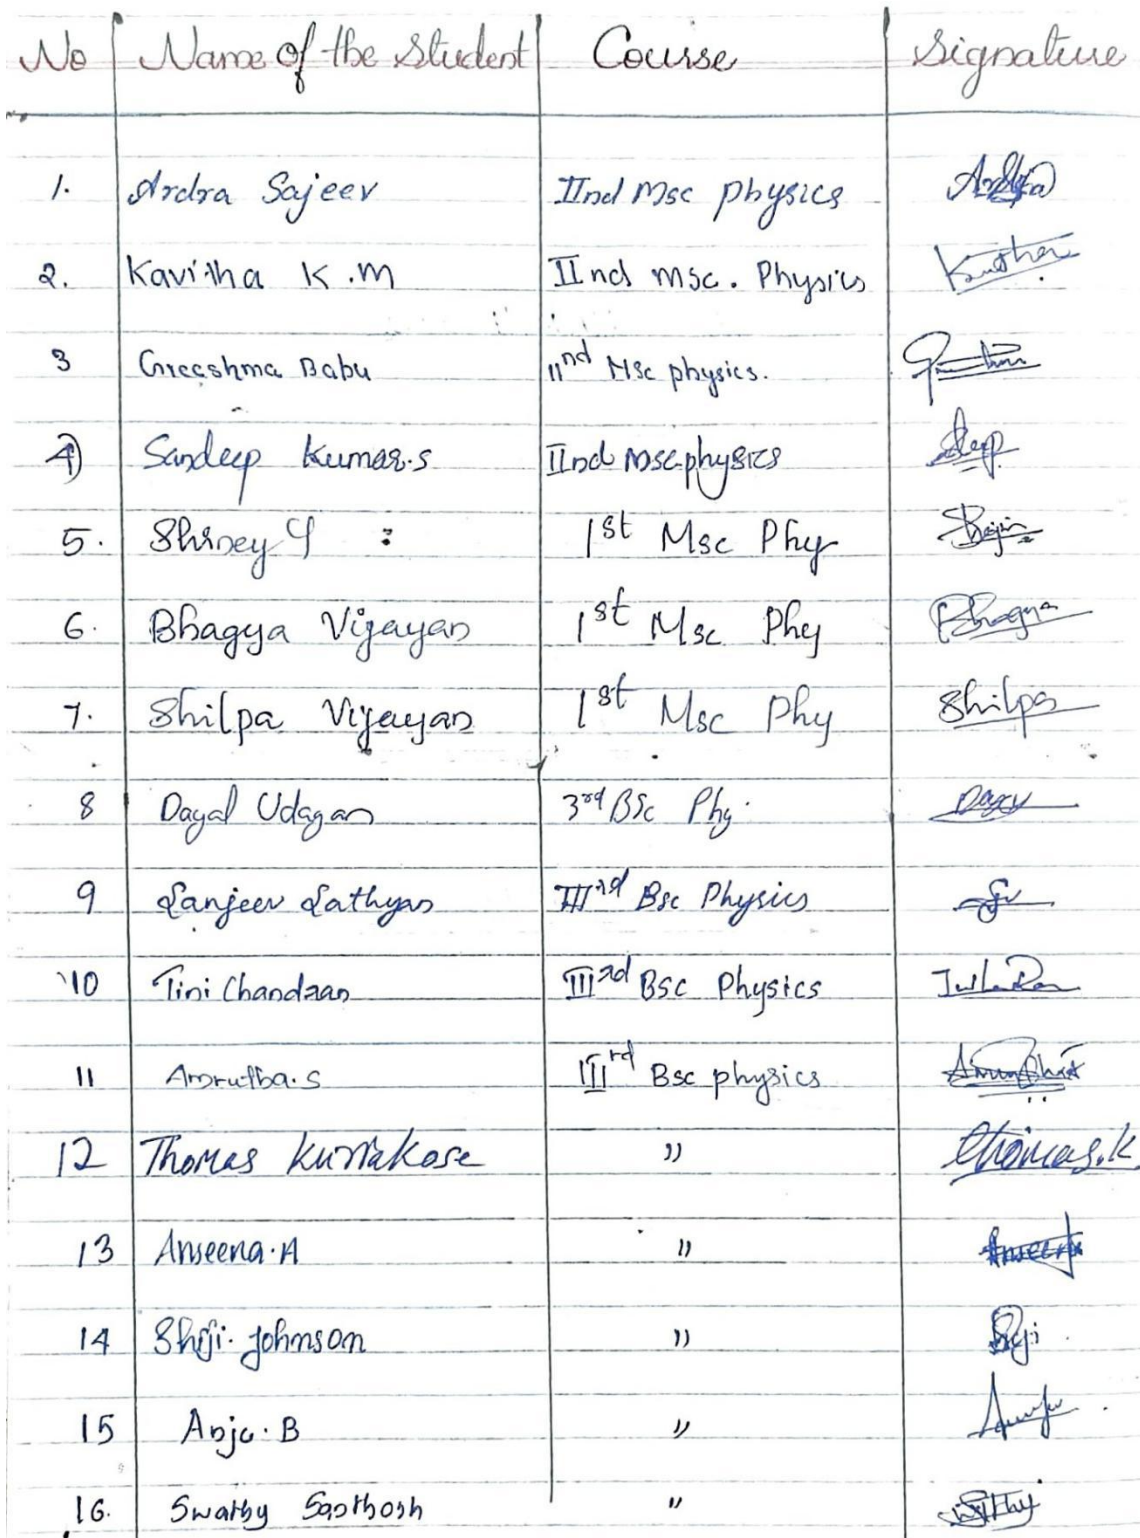 No Name of the Student Course Signature
1. Ardra Sajeev IInd Msc physics
2. Kavitha K.M IInd Msc. Physics
3 Greeshma Babu IInd MSc physics.
4) Sandeep Kumar.S IInd Msc physics
5. 1st Msc Phy
6. Bhagya Vijayan 1st Msc Phy Bhagya
7. Shilpa Vijayan 1st Msc Phy Shilpa
8 Dayal Udayan 3rd BSc Phy.
9 Sanjeev Sathyan IIIrd Bsc Physics
10 Tini Chandran IIIrd BSC Physics
11 Amrutha.S IIIrd Bsc physics
12 Thomas Kuriakose " Thomas.K
13 Anseena.A " Anseena
14 Shiji Johnson "
15 Anju.B "
16. Swathy Santhosh "